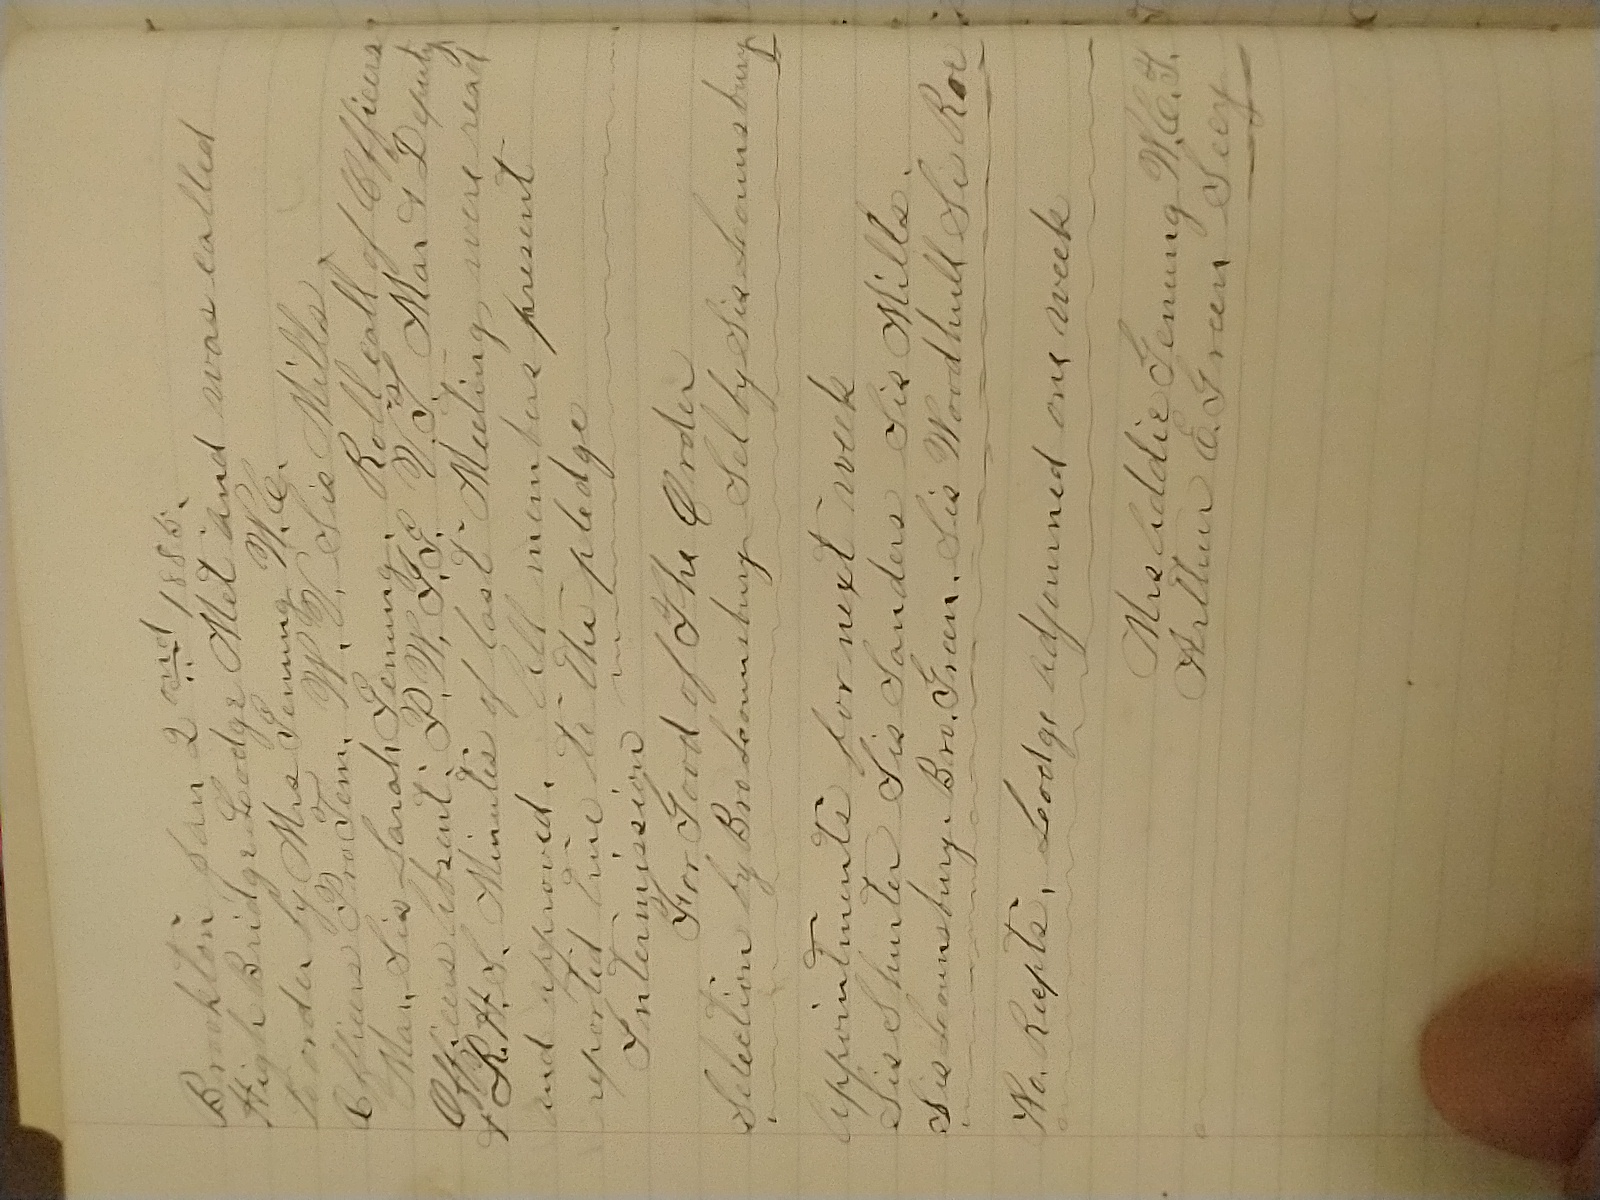 Brookton Jan 2 ond 1886.
High Bridge Lodge Met and was called
to order by Mrs Fenning W.C.
Officers Pro Tem. W.C. Sis Mills
Mar. Sis Sarah Fenning. Roll call of Officers
Officers absent. P.W.C.T. Mar & Deputy
& R.H.S. Minutes of last Meeting were read
and approved. All members present
reported true to the pledge
Intermission
For Good of The Order
Selection by Bro Lounsbury Sel by Sis Lounsbury
Appointments for next week
Sis Shurter Sis Sanders Sis Mills.
Sis Lounsbury. Bro. Green. Sis Woodhull Sis Roe
No. Recpts. Lodge adjourned one week
Mrs Addie Fenning W.C.T.
Arthur E. Green Secy